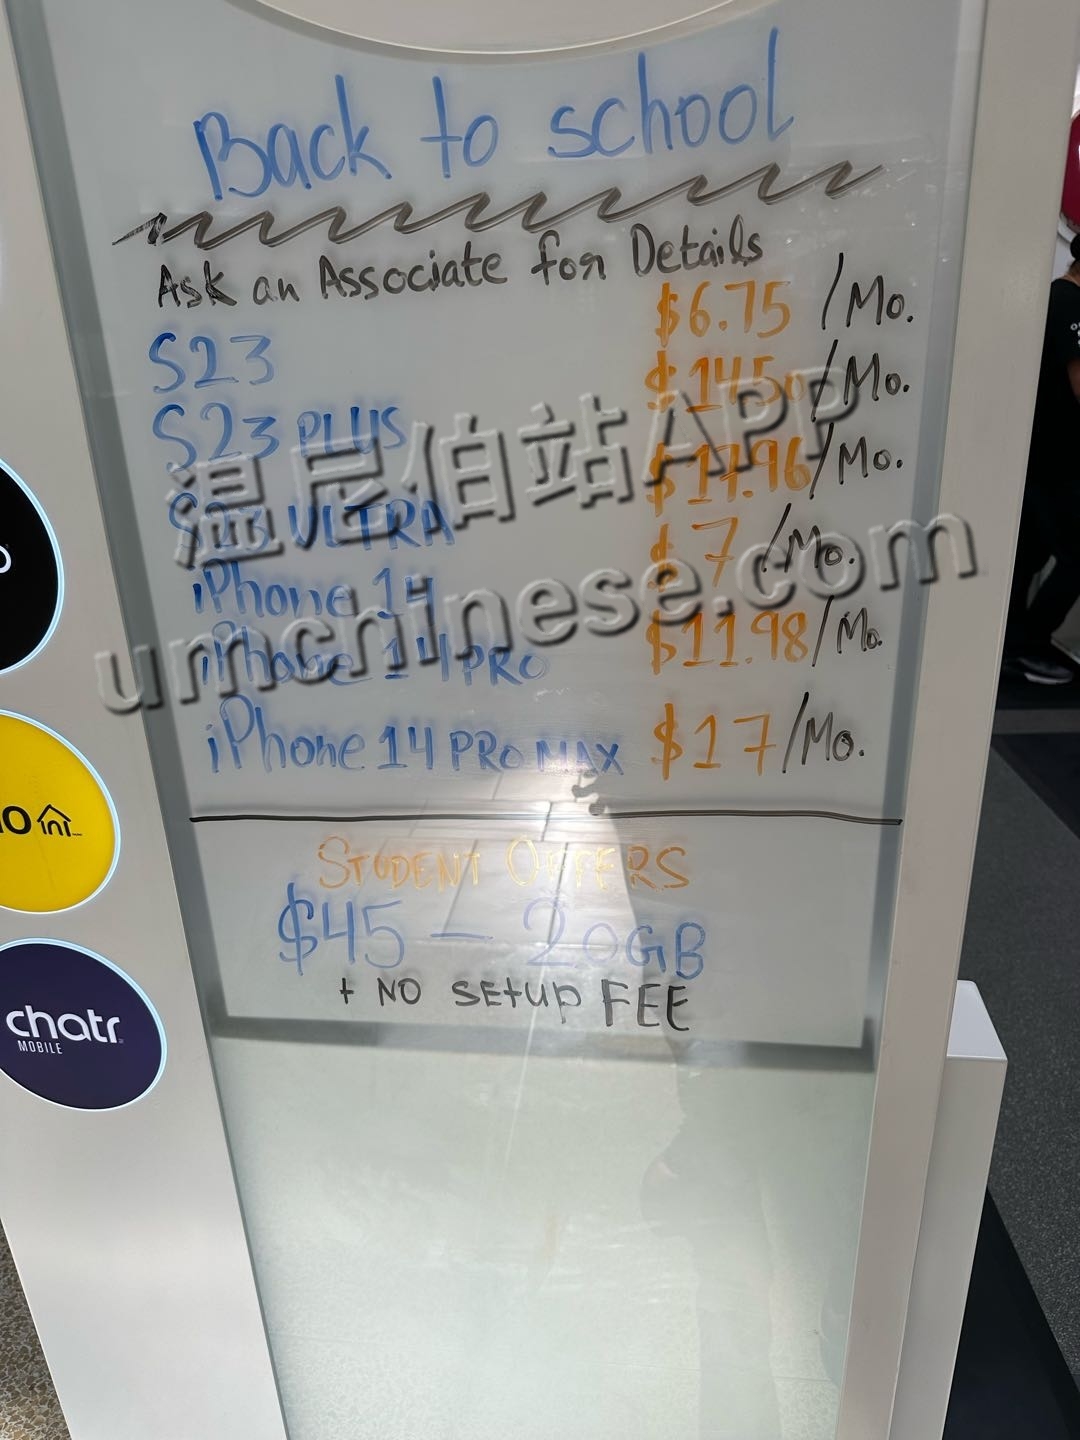 Back to school
Ask an Associate for Details
S23 $6.75 /Mo.
S23 PLUS $14.50/Mo.
S23 ULTRA $17.96/Mo.
iPhone 14 $7/Mo.
iPhone 14 PRO $11.98/Mo.
iPhone 14 PRO MAX $17/Mo.
STUDENT OFFERS
$45 — 20GB
+ NO SETUP FEE
chatr
MOBILE
温尼伯站APP
umchinese.com